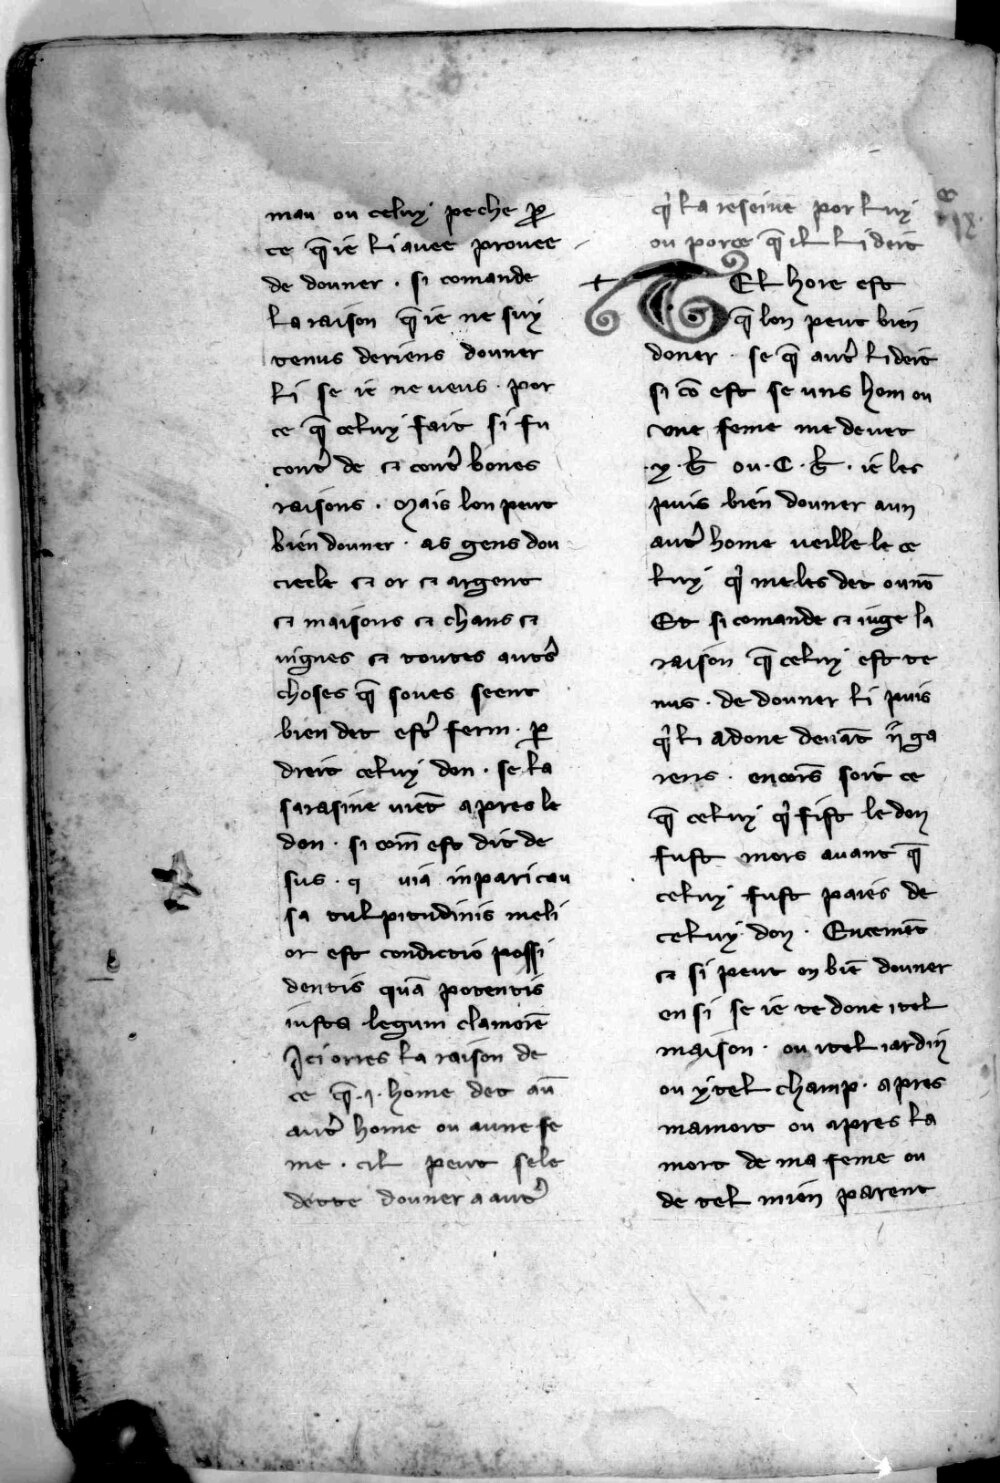 mau ou celuy peche ꝑ
ce q̄ ie li auee prouee
de donner · si comande
la raison q̄ ie ne suy
tenus deriens donner
li se ie ne veus · por
ce q̄ celuy fait si fu
contͬ de ⁊ contͬ bones
raisons · Mais lon peut
bien donner · as gens dou
ciecle ⁊ or ⁊ argent
⁊ maisons ⁊ chans ⁊
uignes ⁊ toutes autͬs
choses q̄ soues seent
bien det estͬ ferm · ꝑ
dreit celuy don · se la
sarasine uiēt apres le
don · si com̄ est dit de
sus · q uia in pari cau
sa tulpitudinis meli
or est condictio possi
dentis quā potentis
iusta legum clamorē
Ici orres la raison de
ce q̄ ·i· home det au̅
autͬ home ou a une fe
me · cil peut sele
dette donner a autͬ
qͥ la reseiue por luy
ou porce q̄ il li deit
Tel hore est
q̄ lon peut bien
doner · se q̄ autͬ li deit
si cō est se uns hom ou
une feme me deuet
·x· b̄ ou · C · b̄ · ie les
puis bien donner a un
autͬ home ueille le ce
luy qͥ me les det ou nō
Et si comande ⁊ iuge la
raison q̄ celuy est te
nus · de donner li puis
qͥ li a done deuāt ·ij· ga
rens · encors soit ce
q̄ celuy qͥ fist le don
fust mors auant q̄
celuy fust paies de
celuy don · Encemēt
⁊ si peut on biē donner
en si se ie te done itel
maison · ou itel iardin
ou ytel champ · apres
ma mort ou apres la
mort de ma feme ou
de tel mien parent